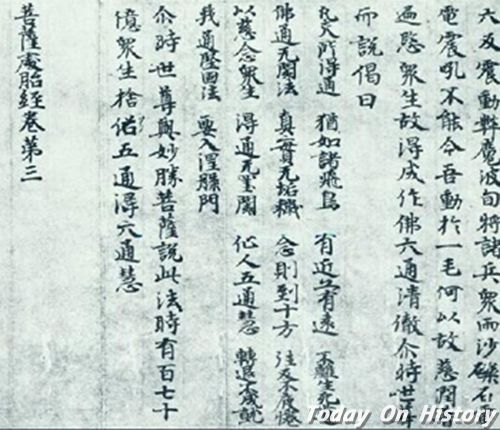 六反震動弊魔波旬將諸兵眾雨沙礫石
電震吼不能令吾動於一毛何以故慈閔
遍愍眾生故得成作佛六通清徹尒時世尊
而說偈曰
凡夫所得通 猶如諸飛鳥 有近亦有遠 不離生死
佛通无閡法 真實无垢穢 念則到十方 往反不疲惓
以慈念眾生 得通无罣閡 仙人五通慧 轉退不成就
我通堅固法 要入涅槃門
尒時世尊與妙勝菩薩說此法時有百七十
憶眾生捨俗五通得六通慧
菩薩處胎經卷第三
Today On History